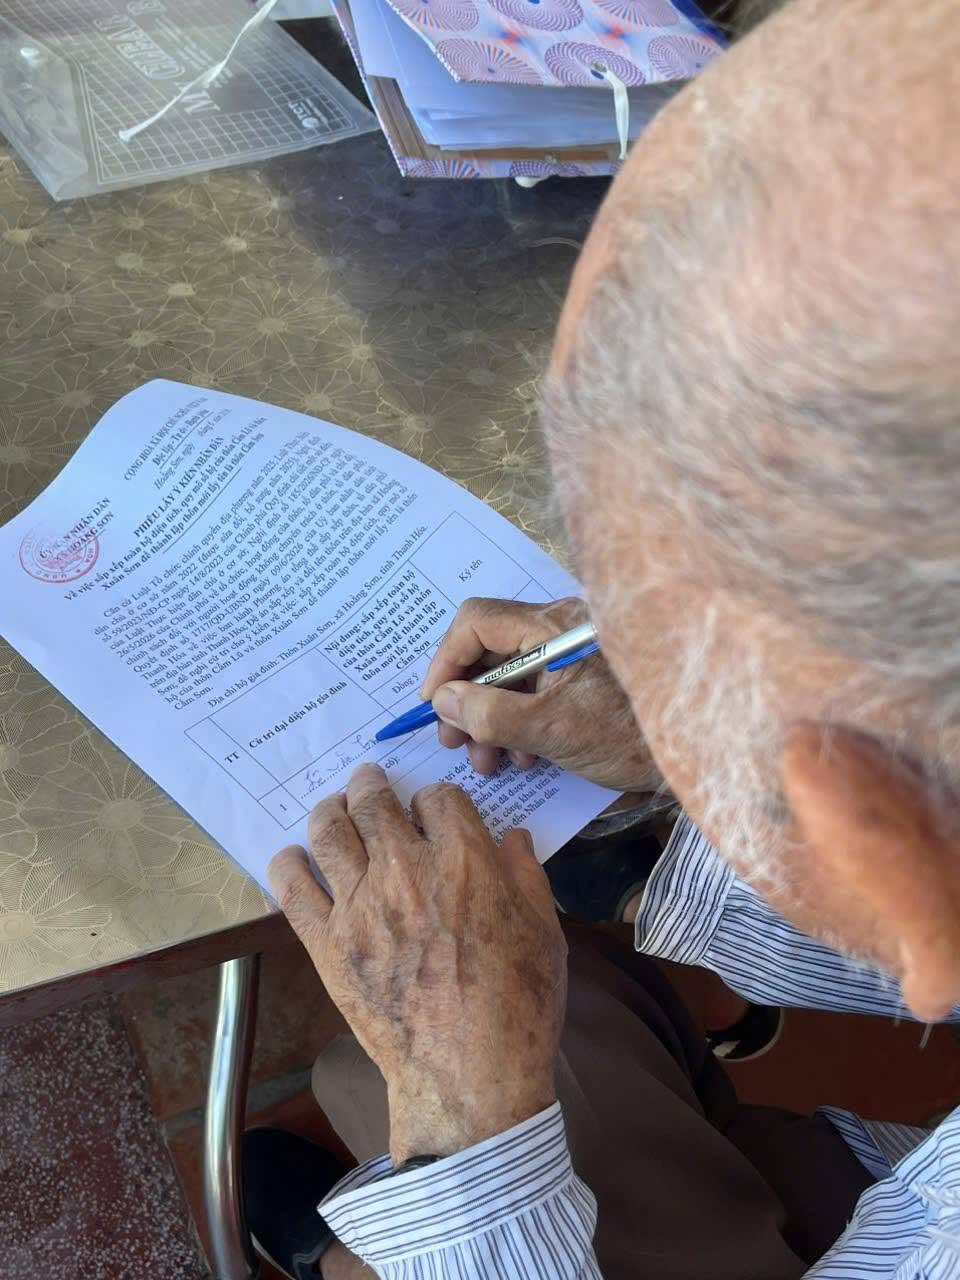 CỘNG HOÀ XÃ HỘI CHỦ NGHĨA VIỆT NAM
Độc lập - Tự do - Hạnh phúc
Hoằng Sơn, ngày tháng 6 năm 2026
ỦY BAN NHÂN DÂN
XÃ HOẰNG SƠN
PHIẾU LẤY Ý KIẾN NHÂN DÂN
Về việc sắp xếp toàn bộ diện tích, quy mô số hộ của thôn Cẩm Lũ và thôn
Xuân Sơn để thành lập thôn mới lấy tên là thôn Cẩm Sơn
Căn cứ Luật Tổ chức chính quyền địa phương năm 2025, Luật Thực hiện
dân chủ ở cơ sở năm 2022 (được sửa đổi, bổ sung năm 2025), Nghị định
số 59/2023/NĐ-CP ngày 14/8/2023 của Chính phủ Quy định chi tiết
của Luật Thực hiện dân chủ ở cơ sở, Nghị định số 185/2026/NĐ-CP ngày
26/5/2026 của Chính phủ về tổ chức, hoạt động của thôn, tổ dân phố và chế độ,
chính sách đối với người hoạt động không chuyên trách ở thôn, tổ dân phố,
Quyết định số 1717/QĐ-UBND ngày 09/6/2026 của Uỷ ban nhân dân tỉnh
Thanh Hóa về việc ban hành Phương án tổng thể sắp xếp thôn, tổ dân phố
trên địa bàn tỉnh Thanh Hóa; Đề án sắp xếp và đổi tên thôn trên địa bàn xã Hoằng
Sơn, đề nghị cử tri cho ý kiến về việc sắp xếp toàn bộ diện tích, quy mô số
hộ của thôn Cẩm Lũ và thôn Xuân Sơn để thành lập thôn mới lấy tên là thôn
Cẩm Sơn.
Địa chỉ hộ gia đình: Thôn Xuân Sơn, xã Hoằng Sơn, tỉnh Thanh Hóa.
TT
Cử tri đại diện hộ gia đình
Nội dung: sắp xếp toàn bộ
diện tích, quy mô số hộ
của thôn Cẩm Lũ và thôn
Xuân Sơn để thành lập
thôn mới lấy tên là thôn
Cẩm Sơn
Ký tên
Đồng ý
1
có):
cử tri đại
"x"
đề án đã được đăng
xã, công khai trên hệ
báo đến Nhân dân.